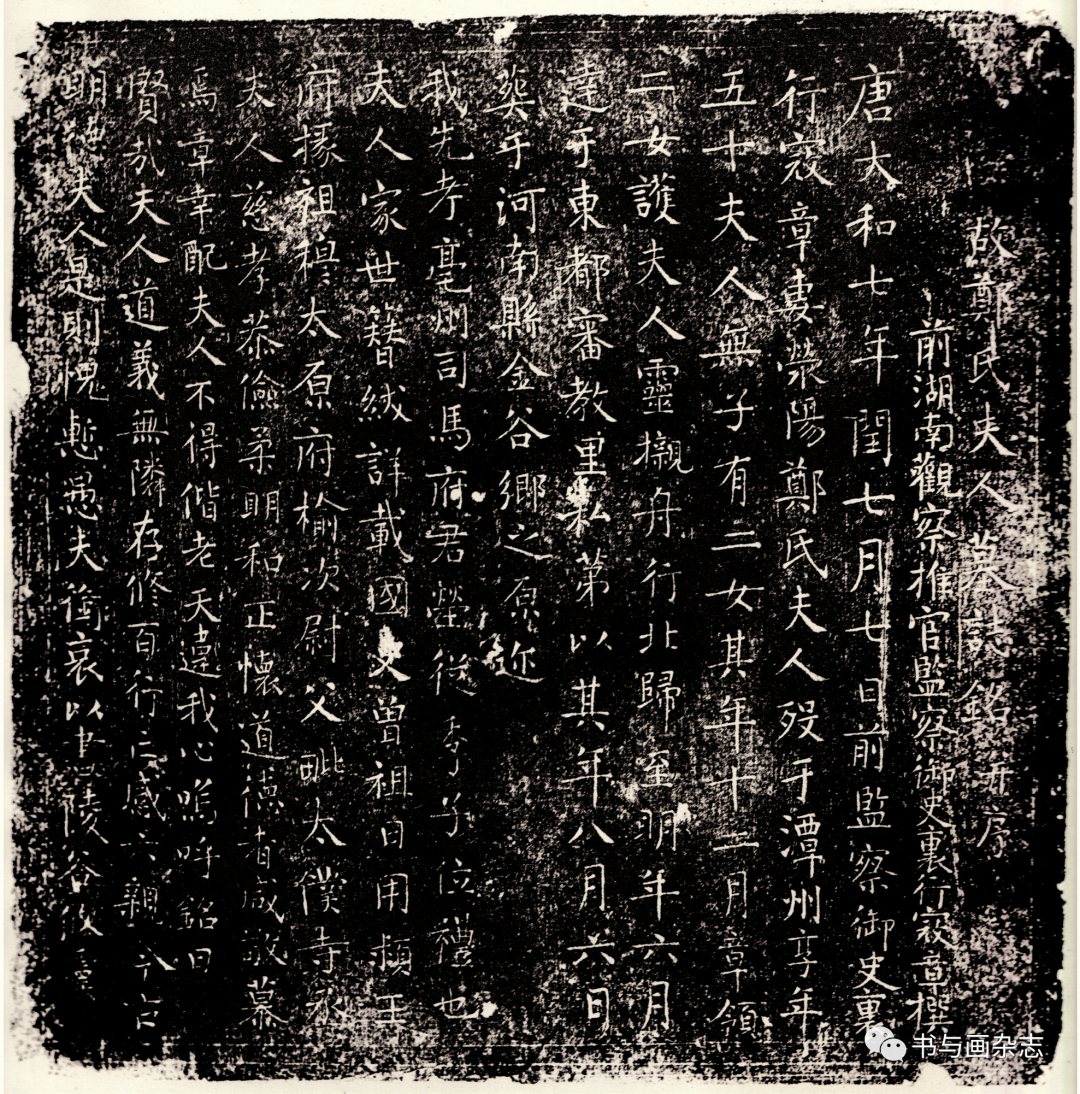 故鄭氏夫人墓誌銘并序
前湖南觀察推官監察御史裏行寇章撰
唐大和七年閏七月七日前監察御史裏
行寇章妻滎陽鄭氏夫人歿于潭州享年
五十夫人無子有二女其年十一月章領
二女護夫人靈櫬舟行北歸至明年六月
達于東都審教里私第以其年八月六日
葬于河南縣金谷鄉之原迩
我先考亳州司馬府君塋從季子位禮也
夫人家世簪紱詳載國史曾祖日用頻王
府掾祖穆太原府榆次尉父毗太僕寺丞
夫人慈孝恭儉柔明和正懷道德者咸敬慕
焉章幸配夫人不得偕老天違我心嗚呼銘曰
賢哉夫人道義無隣存修百行亡感六親今古
明神夫人是則愧慙愚夫銜哀以 陵谷後
书与画杂志